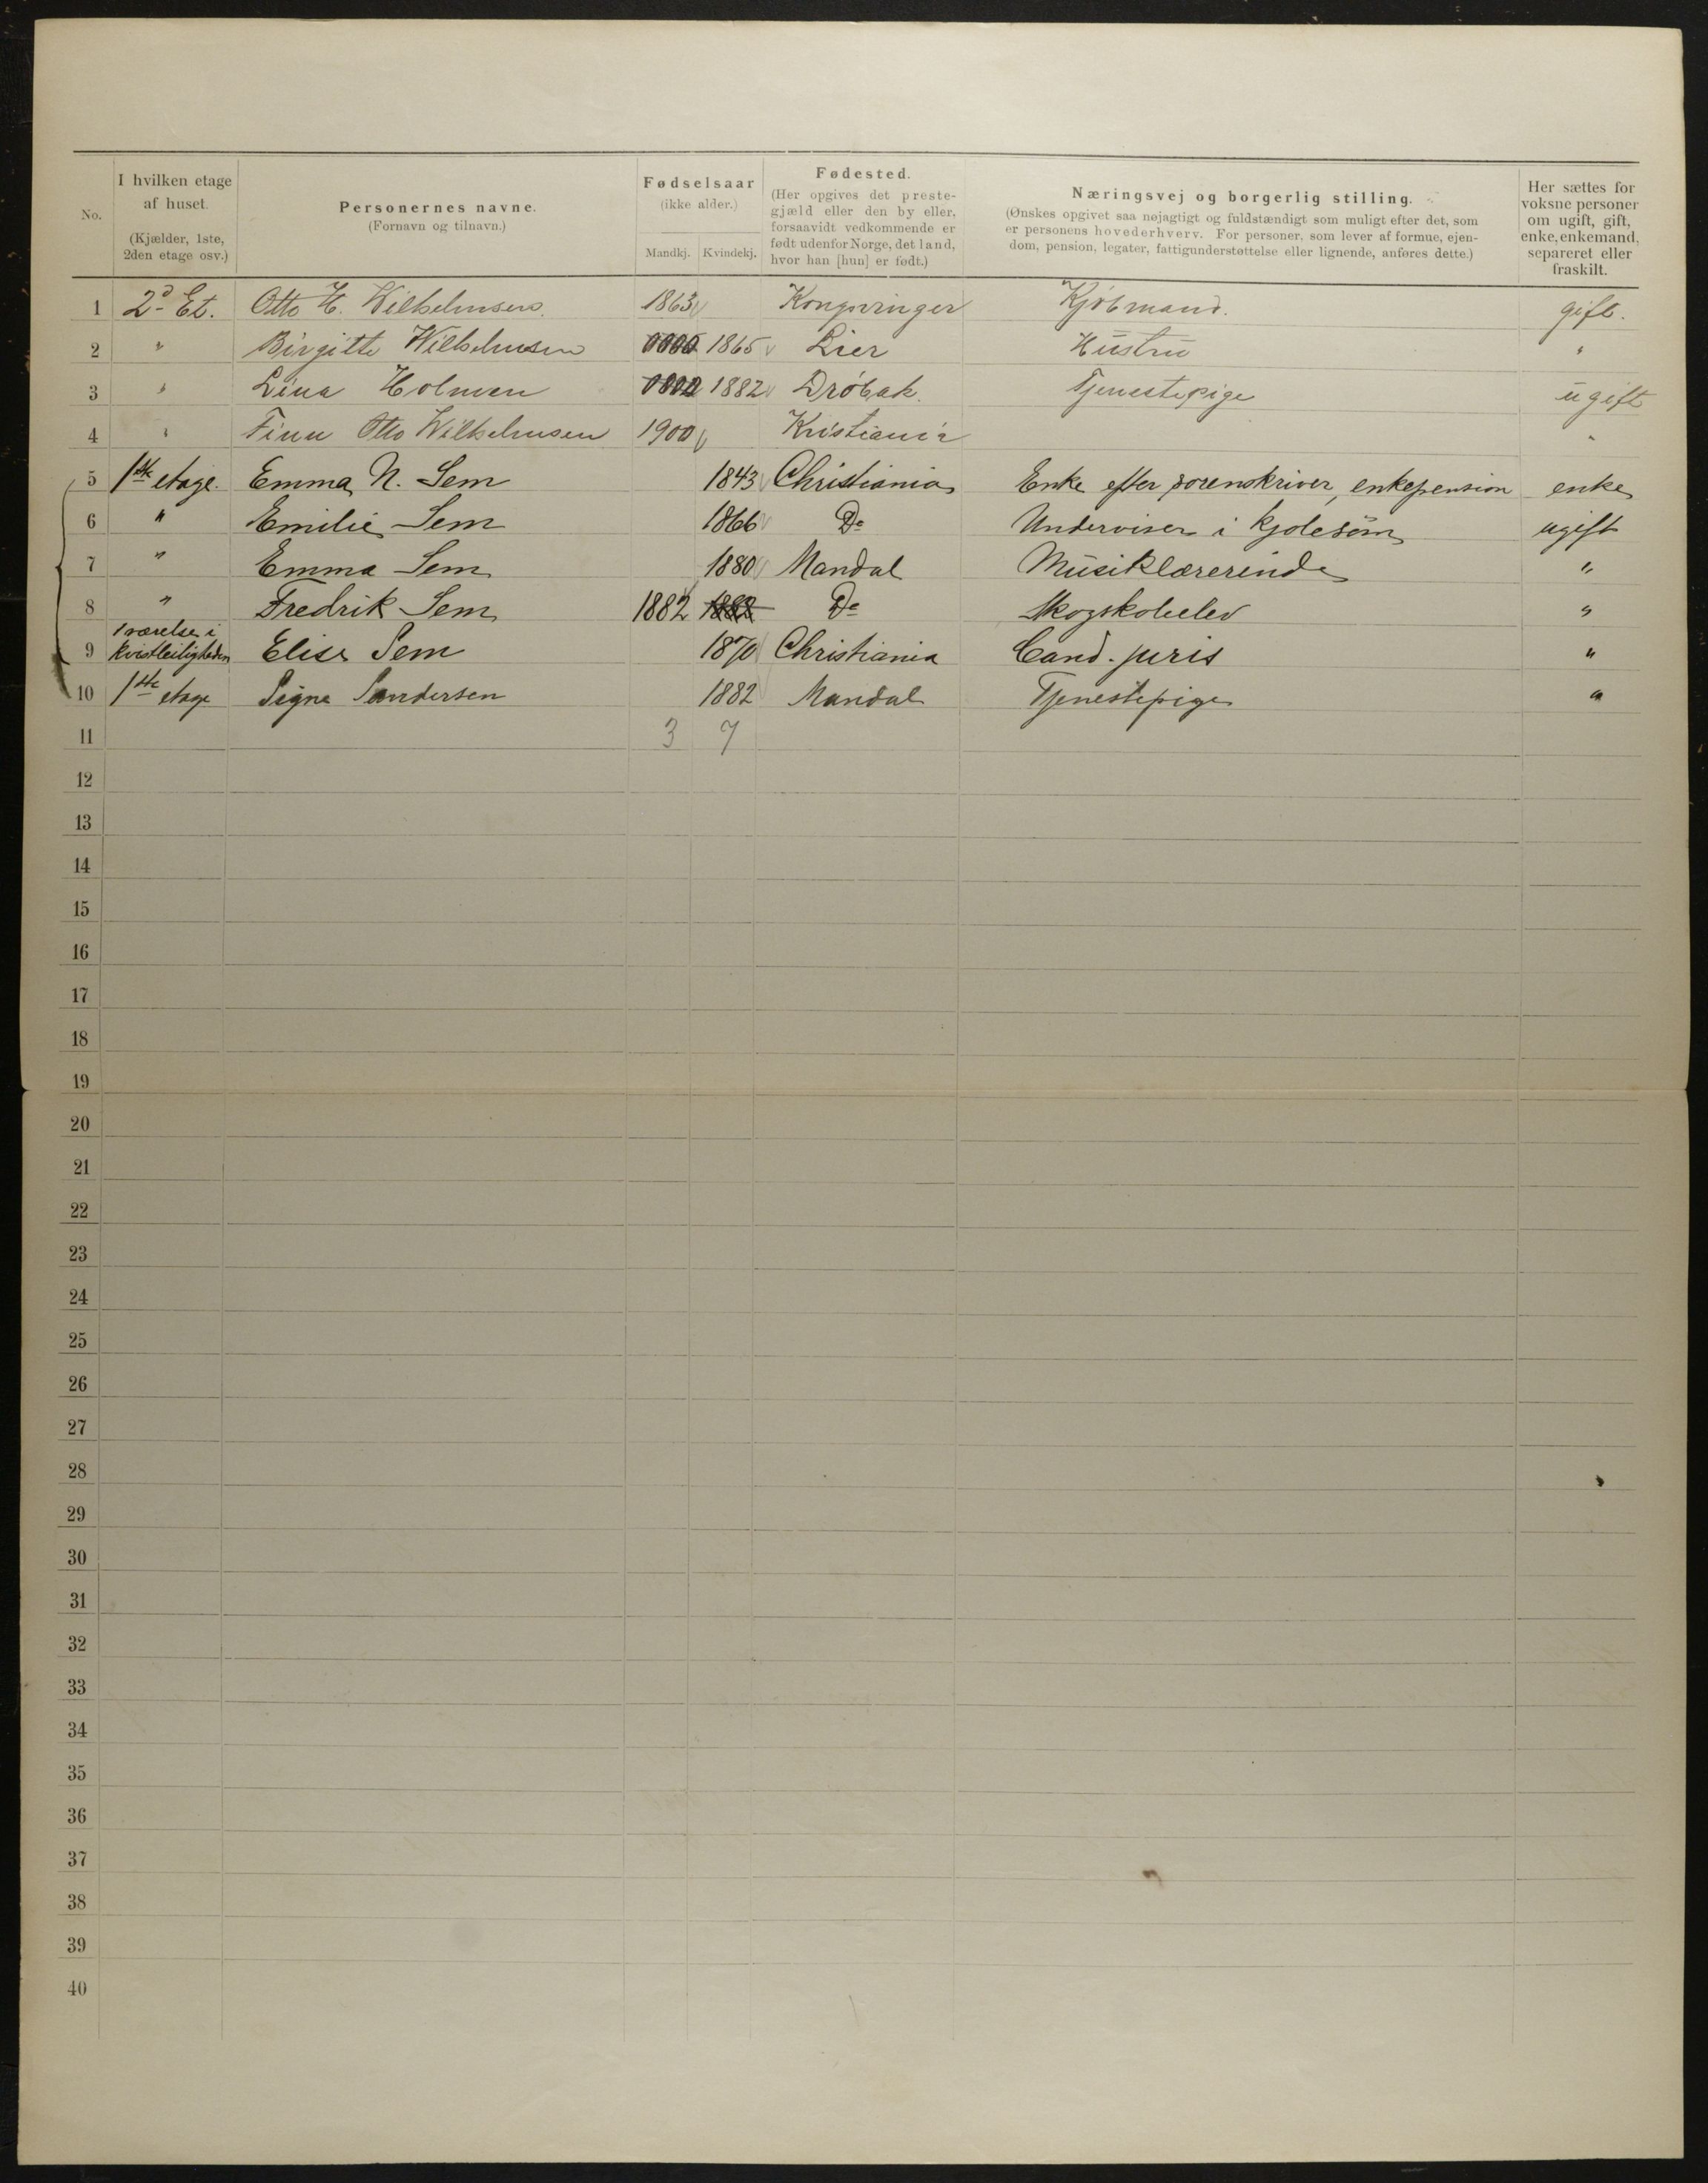 No.
I hvilken etage af huset. (Kjælder, 1ste, 2den etage osv.)
Personernes navne. (Fornavn og tilnavn.)
Fødselsaar (ikke alder.) Mandkj. Kvindekj.
Fødested. (Her opgives det prestegjæld eller den by eller, forsaavidt vedkommende er født udenfor Norge, det land, hvor han [hun] er født.)
Næringsvej og borgerlig stilling. (Ønskes opgivet saa nøjagtigt og fuldstændigt som muligt efter det, som er personens hovederhverv. For personer, som lever af formue, ejendom, pension, legater, fattigunderstøttelse eller lignende, anføres dette.)
Her sættes for voksne personer om ugift, gift, enke, enkemand, separeret eller fraskilt.
1 2d Et. Otto H. Wilhelmsen. 1863 Kongsvinger Kjöbmand. gift.
2 " Birgitte Wilhelmsen 1865 Lier Hustru "
3 " Lina Holmen 1882 Dröbak. Tjenestepige ugift
4 " Finn Otto Wilhelmsen 1900 Kristiania "
5 1ste etage. Emma N. Sem 1843 Christiania Enke efter sorenskriver, enkepension enke
6 " Emilie Sem 1866 Do Underviser i kjolesöm ugift
7 " Emma Sem 1880 Mandal Musiklærerinde "
8 " Fredrik Sem 1882 1882 Do Skogskoleelev "
9 1 værelse i kvistleiligheden Elise Sem 1870 Christiania Cand. juris "
10 1ste etage Signe Sandersen 1882 Mandal Tjenestepige "
11 3 7
12
13
14
15
16
17
18
19
20
21
22
23
24
25
26
27
28
29
30
31
32
33
34
35
36
37
38
39
40